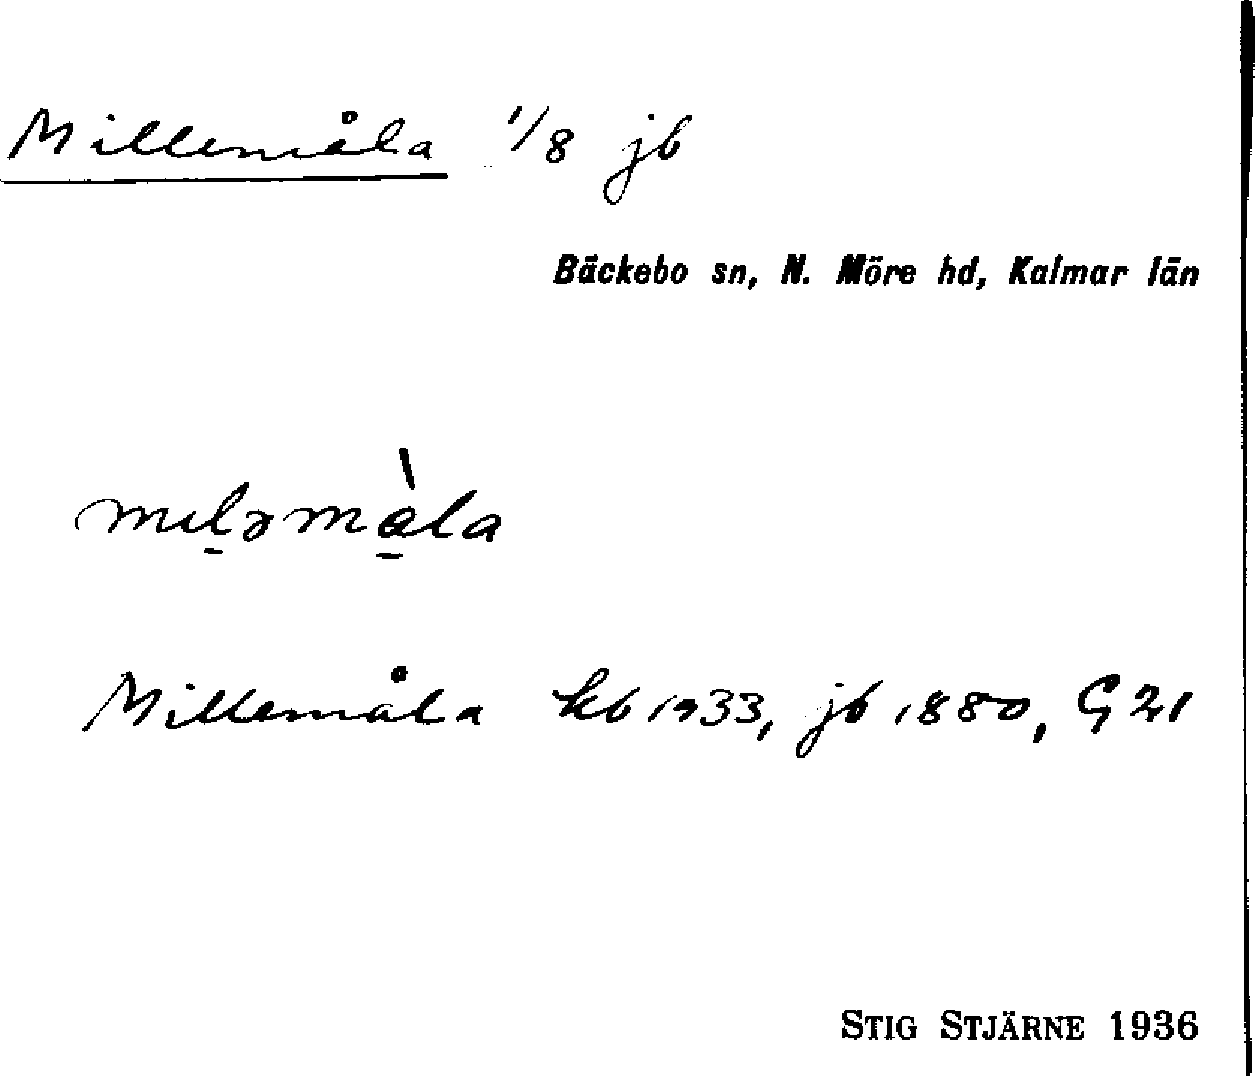 Millemåla 1/8 jb
Bäckebo sn, N. Möre hd, Kalmar län
Millemåla kb 1933, jb 1880, G 21
STIG STJÄRNE 1936